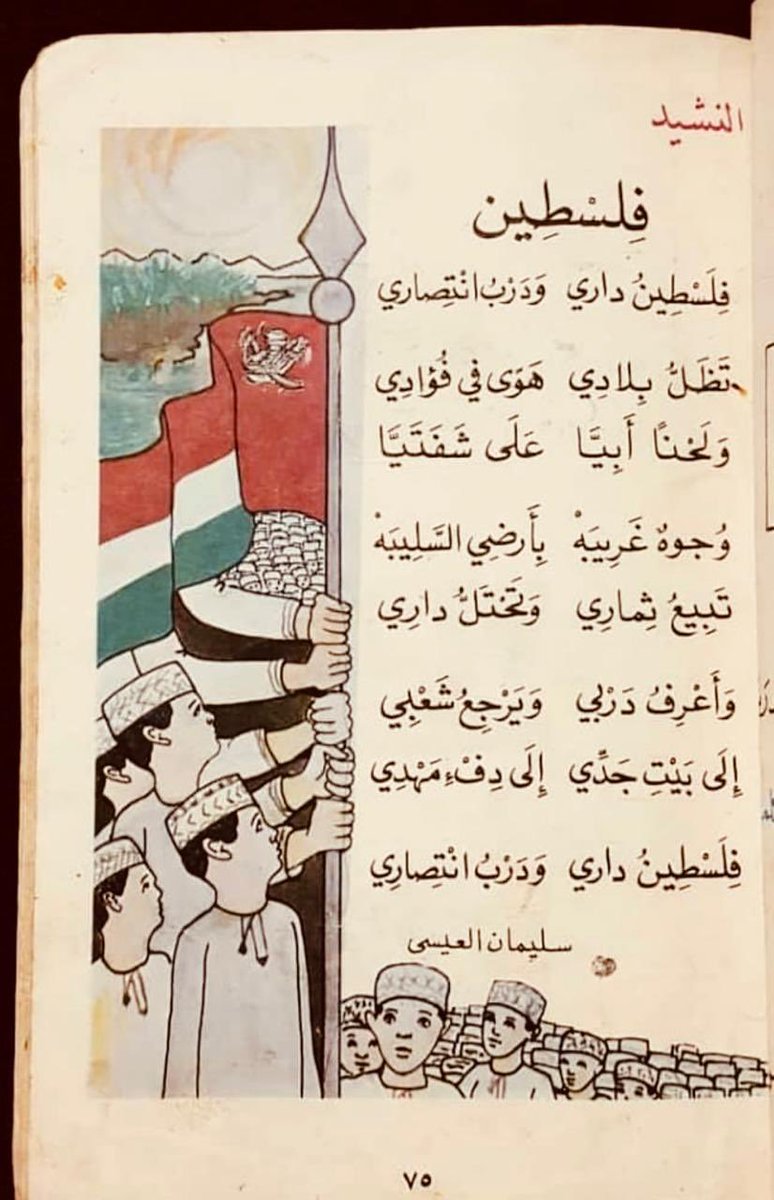 النشيد
فِلِسْطِين
فِلَسْطِينُ داري وَدَرْبُ انْتِصاري
تَظَلُّ بِلادِي هَوًى في فُؤادِي
وَلَحْنًا أَبِيَّا عَلَى شَفَتَيَّا
وُجوهٌ غَرِيبَهْ بِأَرضِي السَّلِيبَهْ
تَبِيعُ ثِمارِي وَتَحْتَلُّ دارِي
وَأَعْرِفُ دَرْبي وَيَرْجِعُ شَعْبِي
إِلَى بَيْتِ جَدِّي إِلَى دِفْءِ مَهْدِي
فِلَسْطِينُ داري وَدَرْبُ انْتِصارِي
سليمان العيسى
٧٥